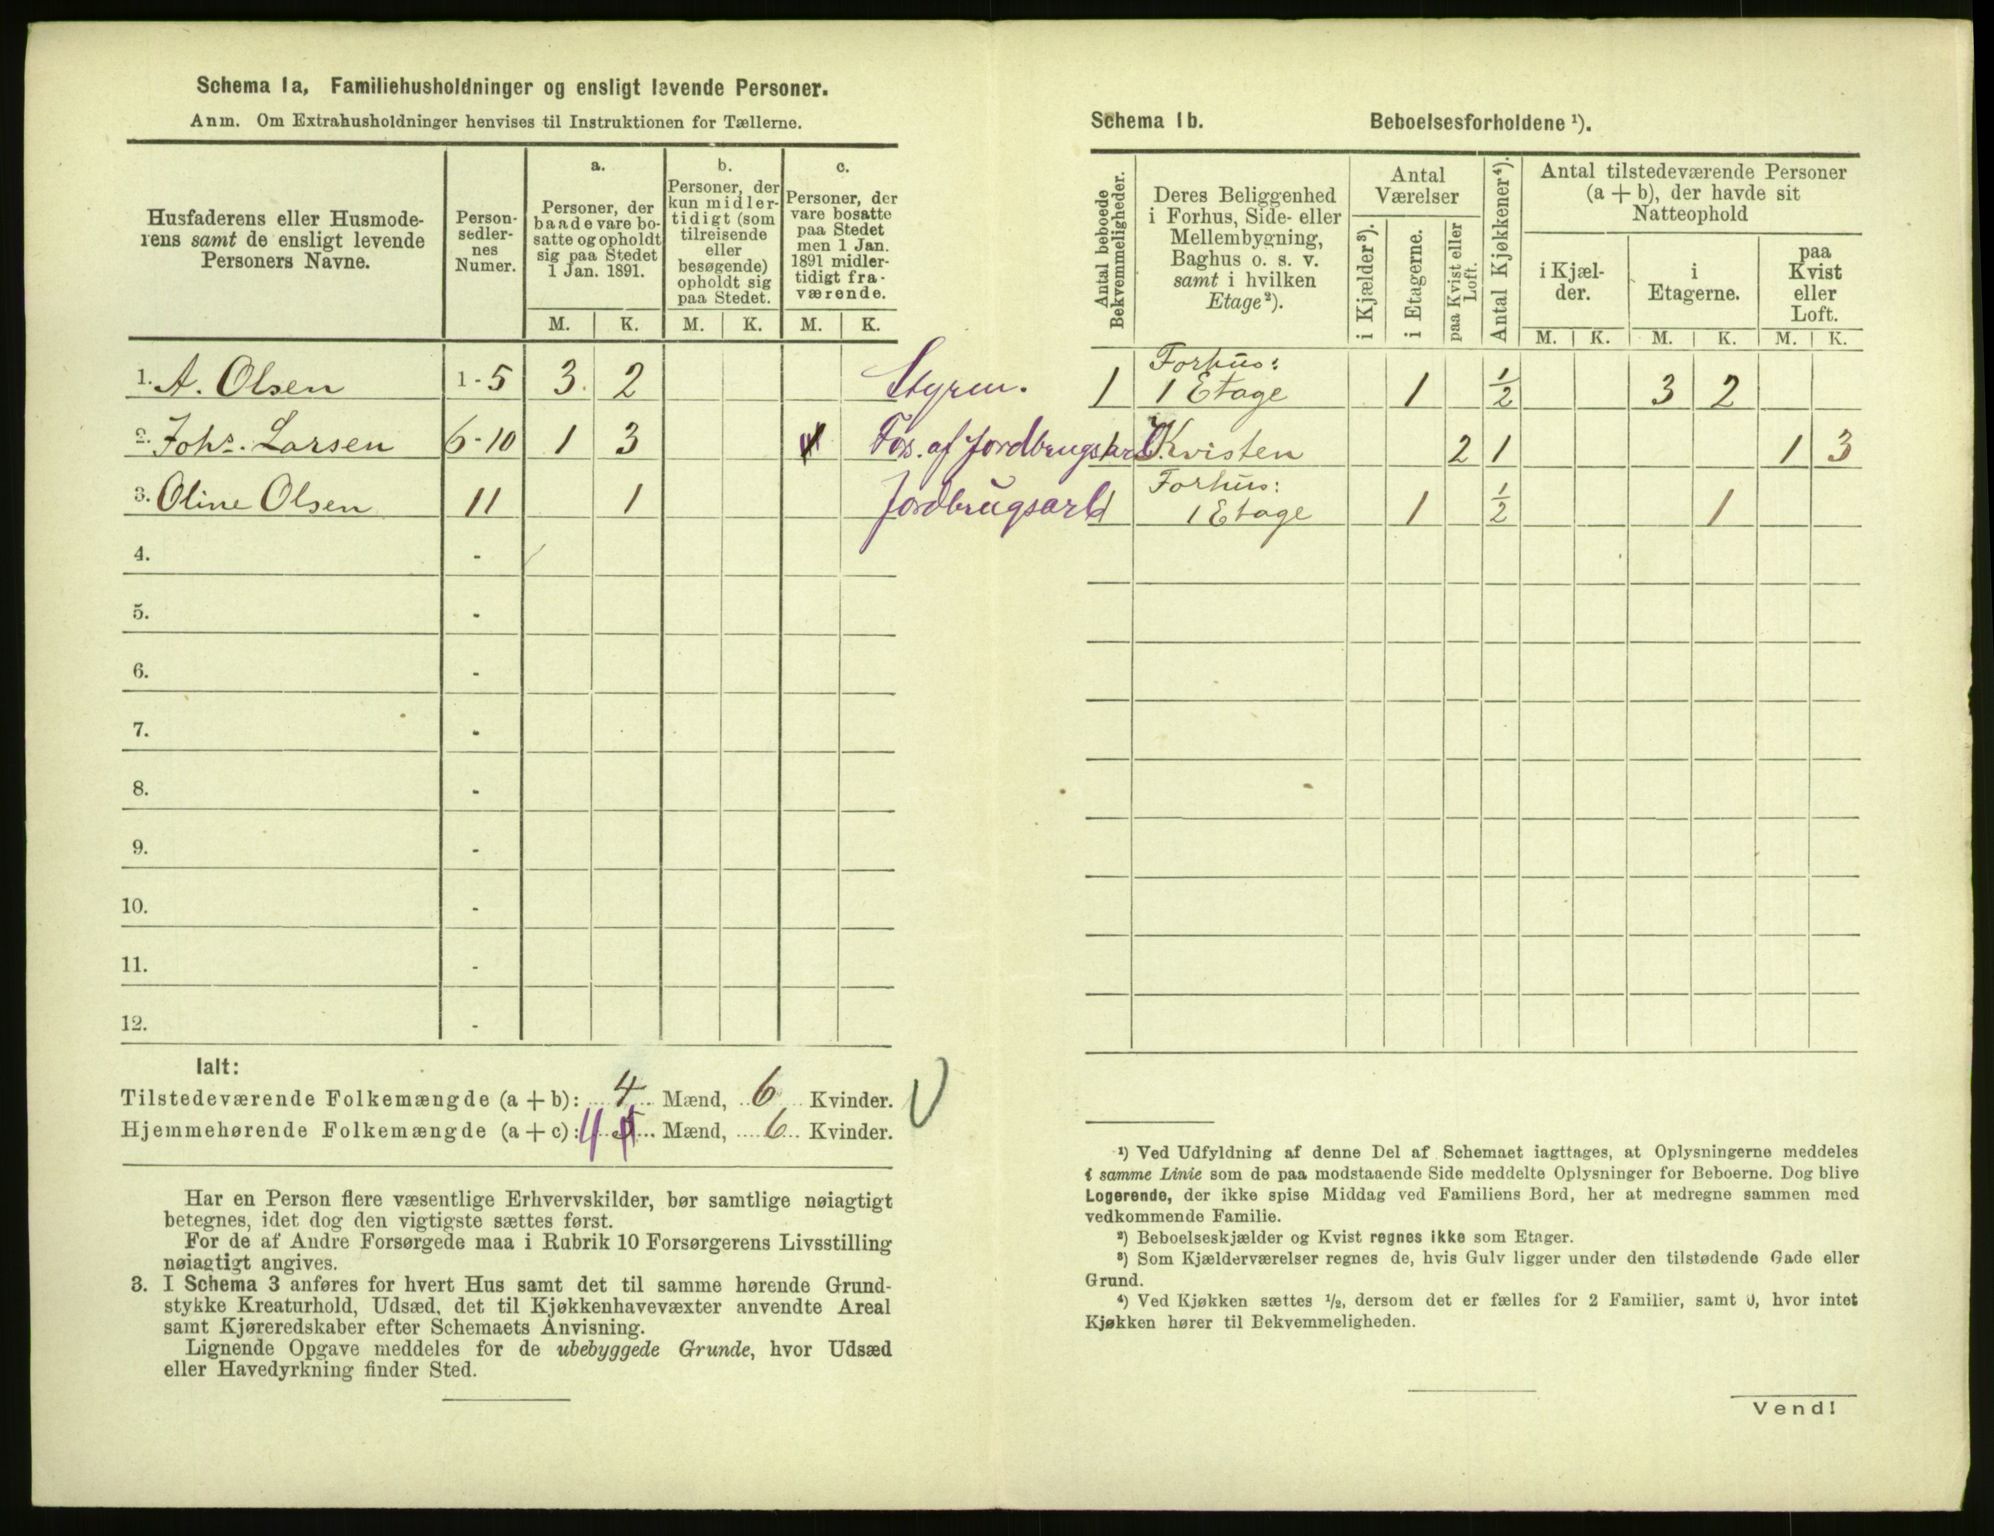 Schema 1a, Familiehusholdninger og ensligt levende Personer.
Anm. Om Extrahusholdninger henvises til Instruktionen for Tællerne.
Husfaderens eller Husmode-
rens samt de ensligt levende
Personers Navne.
Person-
sedler-
nes
Numer.
a.
Personer, der
baade vare bo-
satte og opholdt
sig paa Stedet
1 Jan. 1891.
b.
Personer, der
kun midler-
tidigt (som
tilreisende
eller
besøgende)
opholdt sig
paa Stedet.
c.
Personer, der
vare bosatte
paa Stedet
men 1 Jan.
1891 midler-
tidigt fra-
værende.
M. K. M. K. M. K.
1. A. Olsen 1-5 3 2 Styrm.
2. Johs. Larsen 6-10 1 3 Fos. af Jordbrugsarb.
3. Oline Olsen 11 1 Jordbrugsarb
4. -
5. -
6. -
7. -
8. -
9. -
10. -
11. -
12. -
Ialt:
Tilstedeværende Folkemængde (a + b): 4 Mænd, 6 Kvinder.
Hjemmehørende Folkemængde (a + c): 4 5 Mænd, 6 Kvinder.
Har en Person flere væsentlige Erhvervskilder, bør samtlige nøiagtigt
betegnes, idet dog den vigtigste sættes først.
For de af Andre Forsørgede maa i Rubrik 10 Forsørgerens Livsstilling
nøiagtigt angives.
3. I Schema 3 anføres for hvert Hus samt det til samme hørende Grund-
stykke Kreaturhold, Udsæd, det til Kjøkkenhavevæxter anvendte Areal
samt Kjøreredskaber efter Schemaets Anvisning.
Lignende Opgave meddeles for de ubebyggede Grunde, hvor Udsæd
eller Havedyrkning finder Sted.
Schema 1b. Beboelsesforholdene ¹).
Antal beboede
Bekvemmeligheder.
Deres Beliggenhed
i Forhus, Side- eller
Mellembygning,
Baghus o. s. v.
samt i hvilken
Etage²).
Antal
Værelser
i Kjælder³).
i Etagerne.
paa Kvist eller
Loft.
Antal Kjøkkener⁴).
Antal tilstedeværende Personer
(a + b), der havde sit
Natteophold
i Kjæl-
der.
i
Etagerne.
paa
Kvist
eller
Loft.
M. K. M. K. M. K.
Forhus:
1 1 Etage 1 ½ 3 2
1 Kvisten 2 1 1 3
Forhus:
1 1 Etage 1 ½ 1
¹) Ved Udfyldning af denne Del af Schemaet iagttages, at Oplysningerne meddeles
i samme Linie som de paa modstaaende Side meddelte Oplysninger for Beboerne. Dog blive
Logerende, der ikke spise Middag ved Familiens Bord, her at medregne sammen med
vedkommende Familie.
²) Beboelseskjælder og Kvist regnes ikke som Etager.
³) Som Kjælderværelser regnes de, hvis Gulv ligger under den tilstødende Gade eller
Grund.
⁴) Ved Kjøkken sættes ½, dersom det er fælles for 2 Familier, samt 0, hvor intet
Kjøkken hører til Bekvemmeligheden.
Vend!